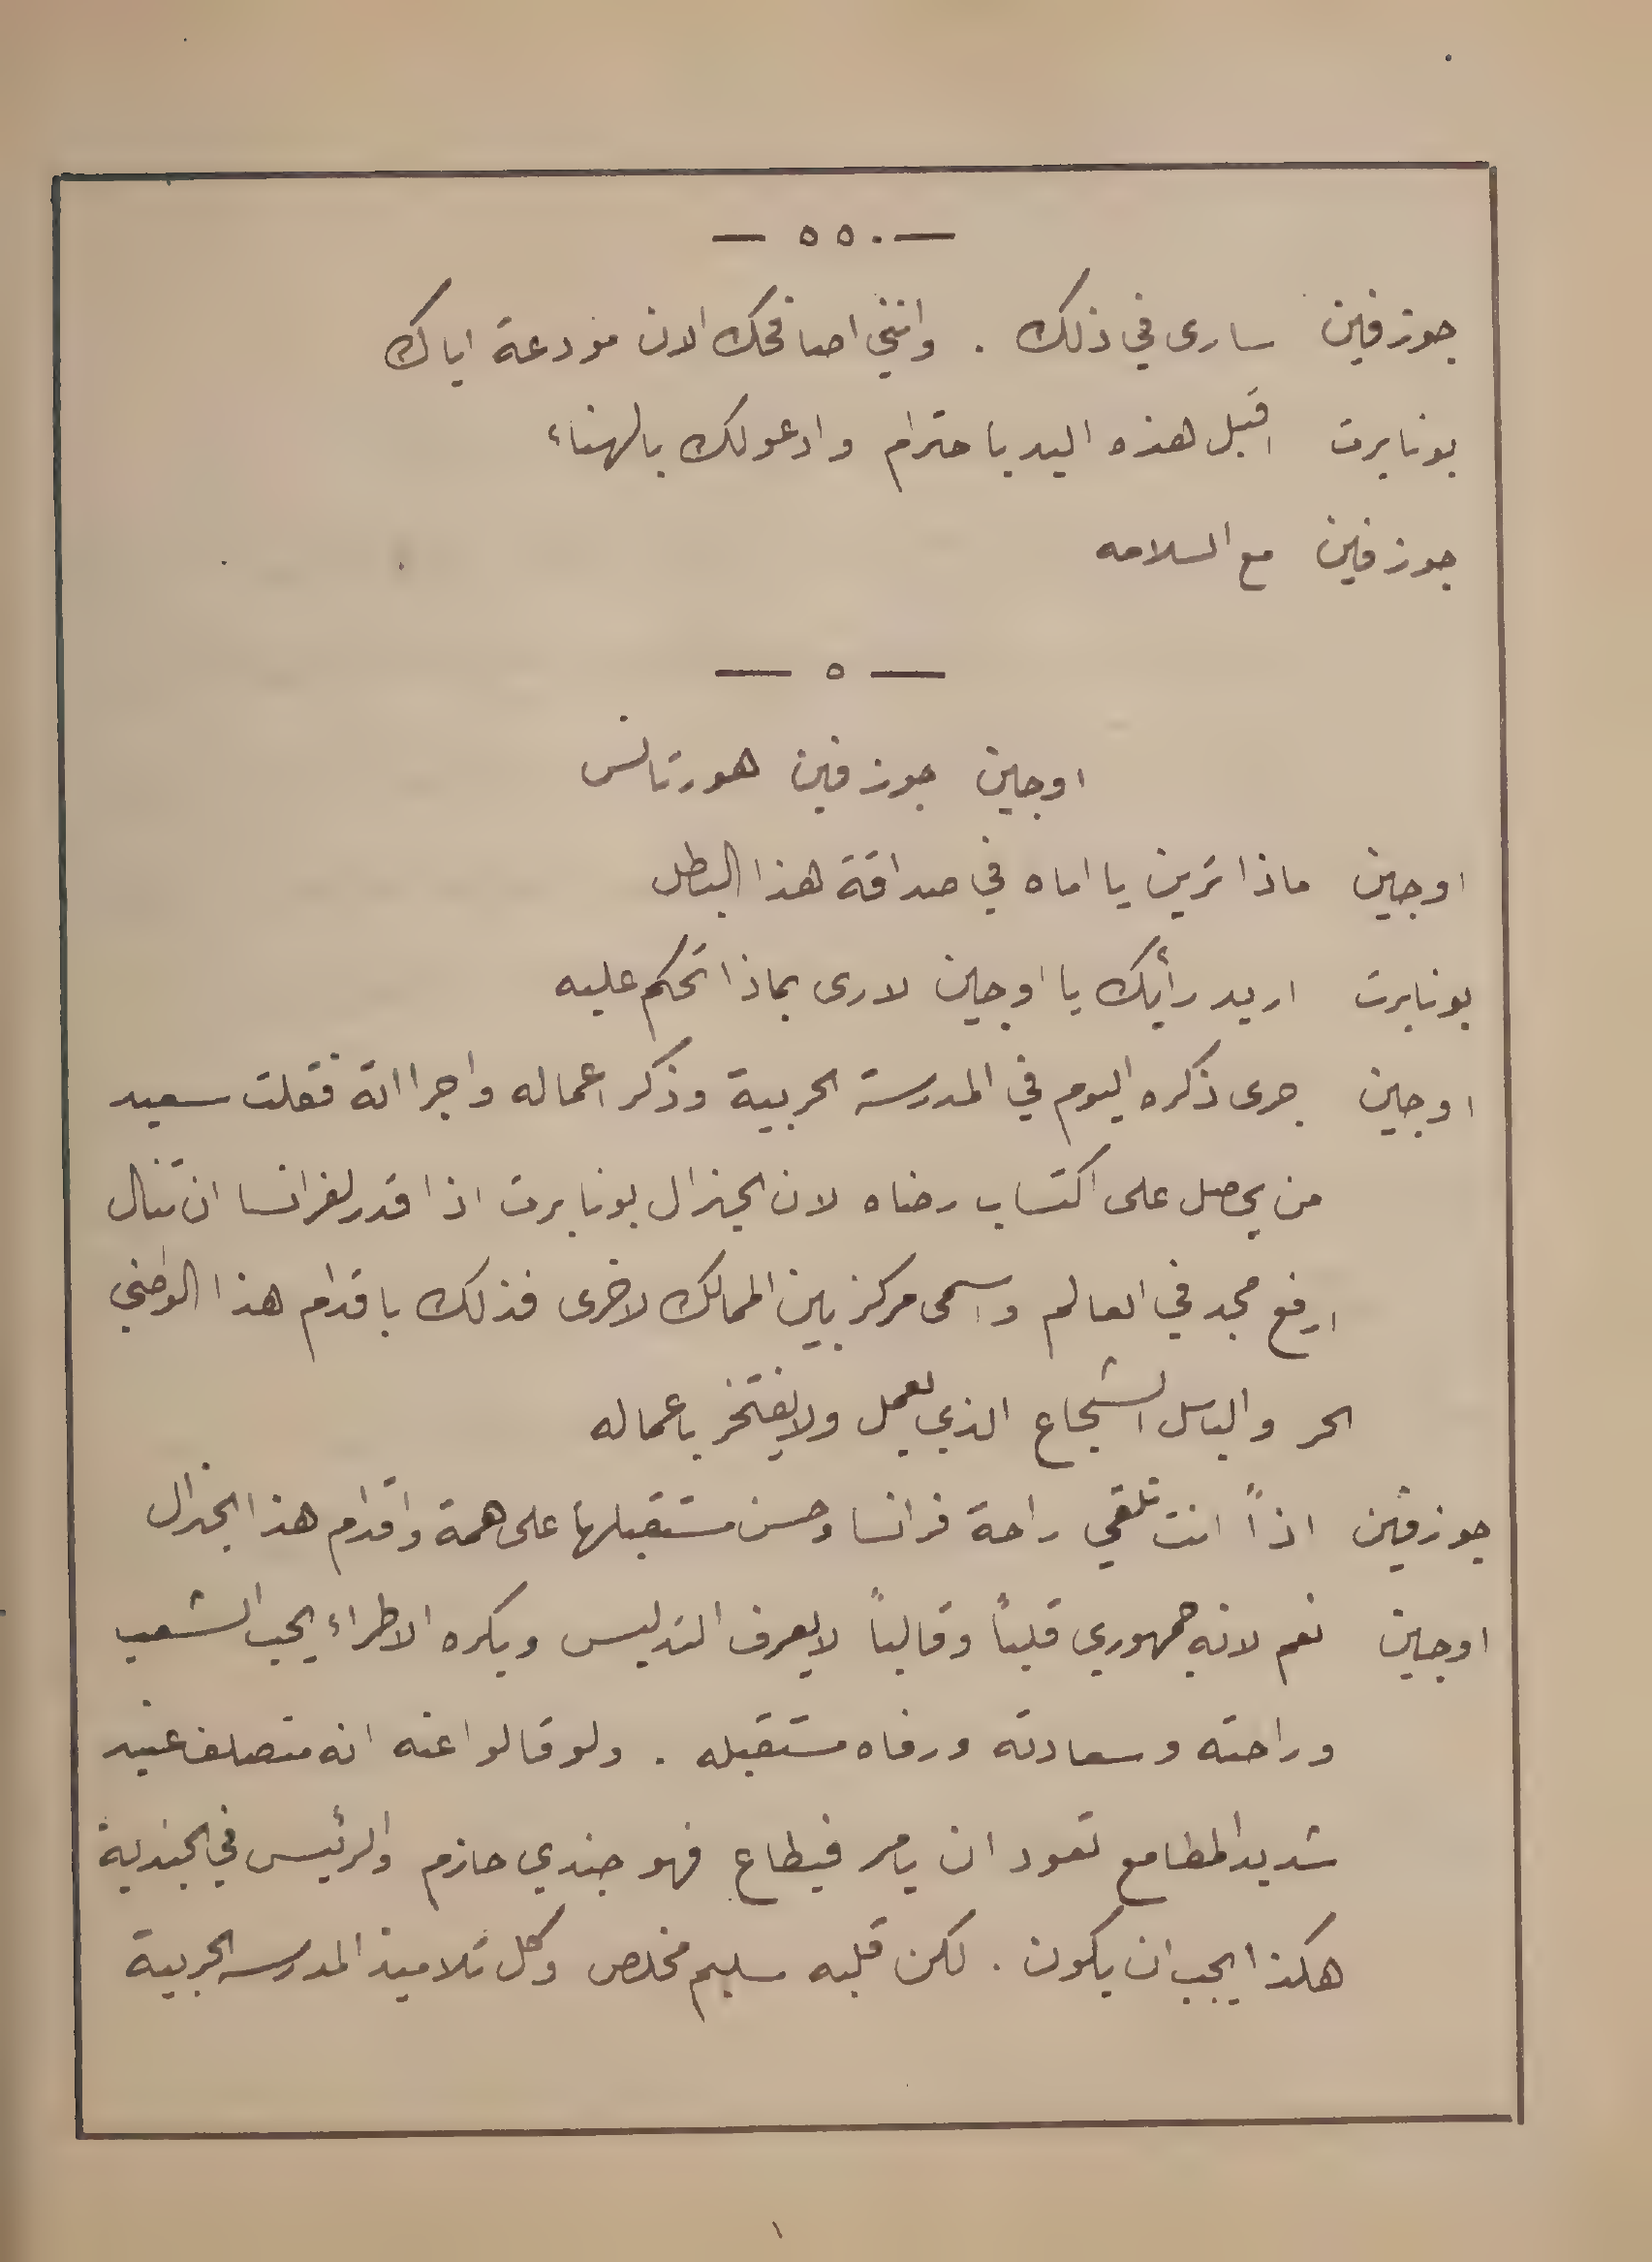 — ٥٥٠ —
جوزفين ساري في ذلك . وانني اصافحك الان مودعة اياك
بونابرت اقبل هذه اليد باحترام وادعو لك بالهناء
جوزفين مع السلامه
— ٥ —
اوجين جوزفين هورتانس
اوجين ماذا ترين يا اماه في صداقة هذا البطل
بونابرت اريد رأيك يا اوجين لارى بماذا تحكم عليه
اوجين جرى ذكره اليوم في المدرسة الحربية وذكر اعماله واجرااته فقلت سعيد
من يحصل على اكتساب رضاه لان الجنرال بونابرت اذا قدر لفرانسا ان تنال
ارفع مجد في العالم واسمى مركز بين الممالك لاخرى فذلك باقدام هذا الوطني
الحر والباسل الشجاع الذي يعمل ولا يفتخر باعماله
جوزفين اذاً انت تلقي راحة فرانسا وحسن مستقبلها على همة واقدام هذا الجنرال
اوجين نعم لانه جمهوري قلباً وقالباً لا يعرف التدليس ويكره الاطراء يحب الشعب
وراحته وسعادته ورفاه مستقبله . ولو قالوا عنه انه متصلف عنيد
شديد المطامع تعود ان يامر فيطاع فهو جندي حازم والرئيس في الجندية
هكذا يجب ان يكون . لكن قلبه سليم مخلص وكل تلاميذ المدرسه الحربية
١